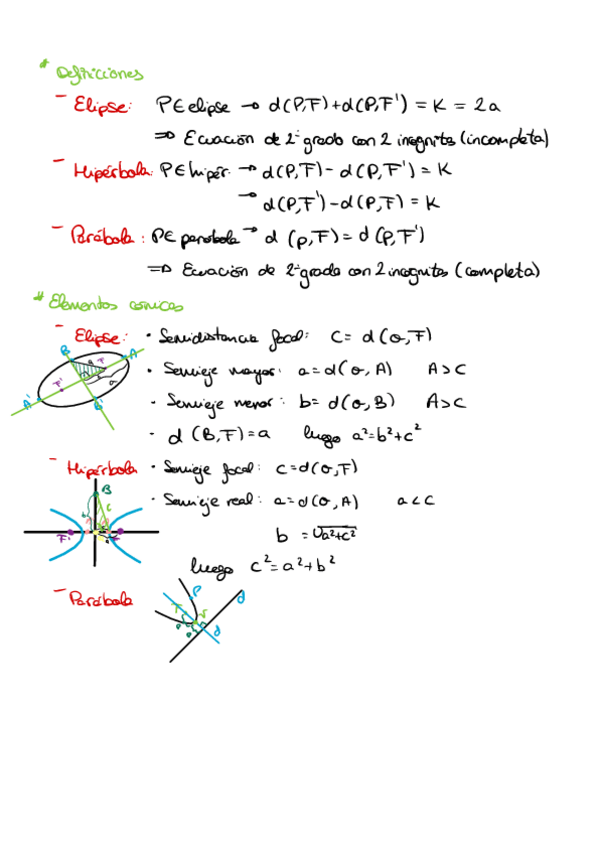 * Definiciones
- Elipse: P∈elipse → d(P,F)+d(P,F') = K = 2a
⇒ Ecuación de 2º grado con 2 incognitas (incompleta)
- Hipérbola: P∈hipér. → d(P,F) - d(P,F') = K
→ d(P,F') - d(P,F) = K
- Parábola: P∈ parabola → d (p,F) = d(P,F')
⇒ Ecuación de 2º grado con 2 incognitas (completa)
* Elementos cónicas
- Elipse: • Semidistancia focal: C = d(O,F)
• Semieje mayor: a = d(O,A) A>C
• Semieje menor: b = d(O,B) A>C
• d (B,F) = a luego a²=b²+c²
B
F
A
a
F'
A'
B'
- Hipérbola • Semieje focal: c=d(O,F)
• Semieje real: a=d(O,A) a<c
b = √a²+c²
luego c²=a²+b²
B
c
F'
- Parábola
P
d
F
V
d